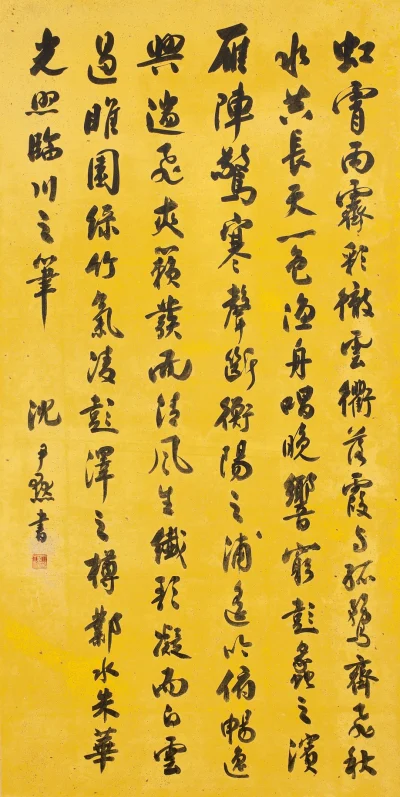 虹霄雨霽彩徹雲衢落霞与孤鶩齊飛秋
水共長天一色漁舟唱晚響窮彭蠡之濱
雁陣驚寒聲斷衡陽之浦遙吟俯暢逸
興遄飛爽籟發而清風生纖歌凝而白雲
遏睢園綠竹氣凌彭澤之樽鄴水朱華
光照臨川之筆
沈尹默書